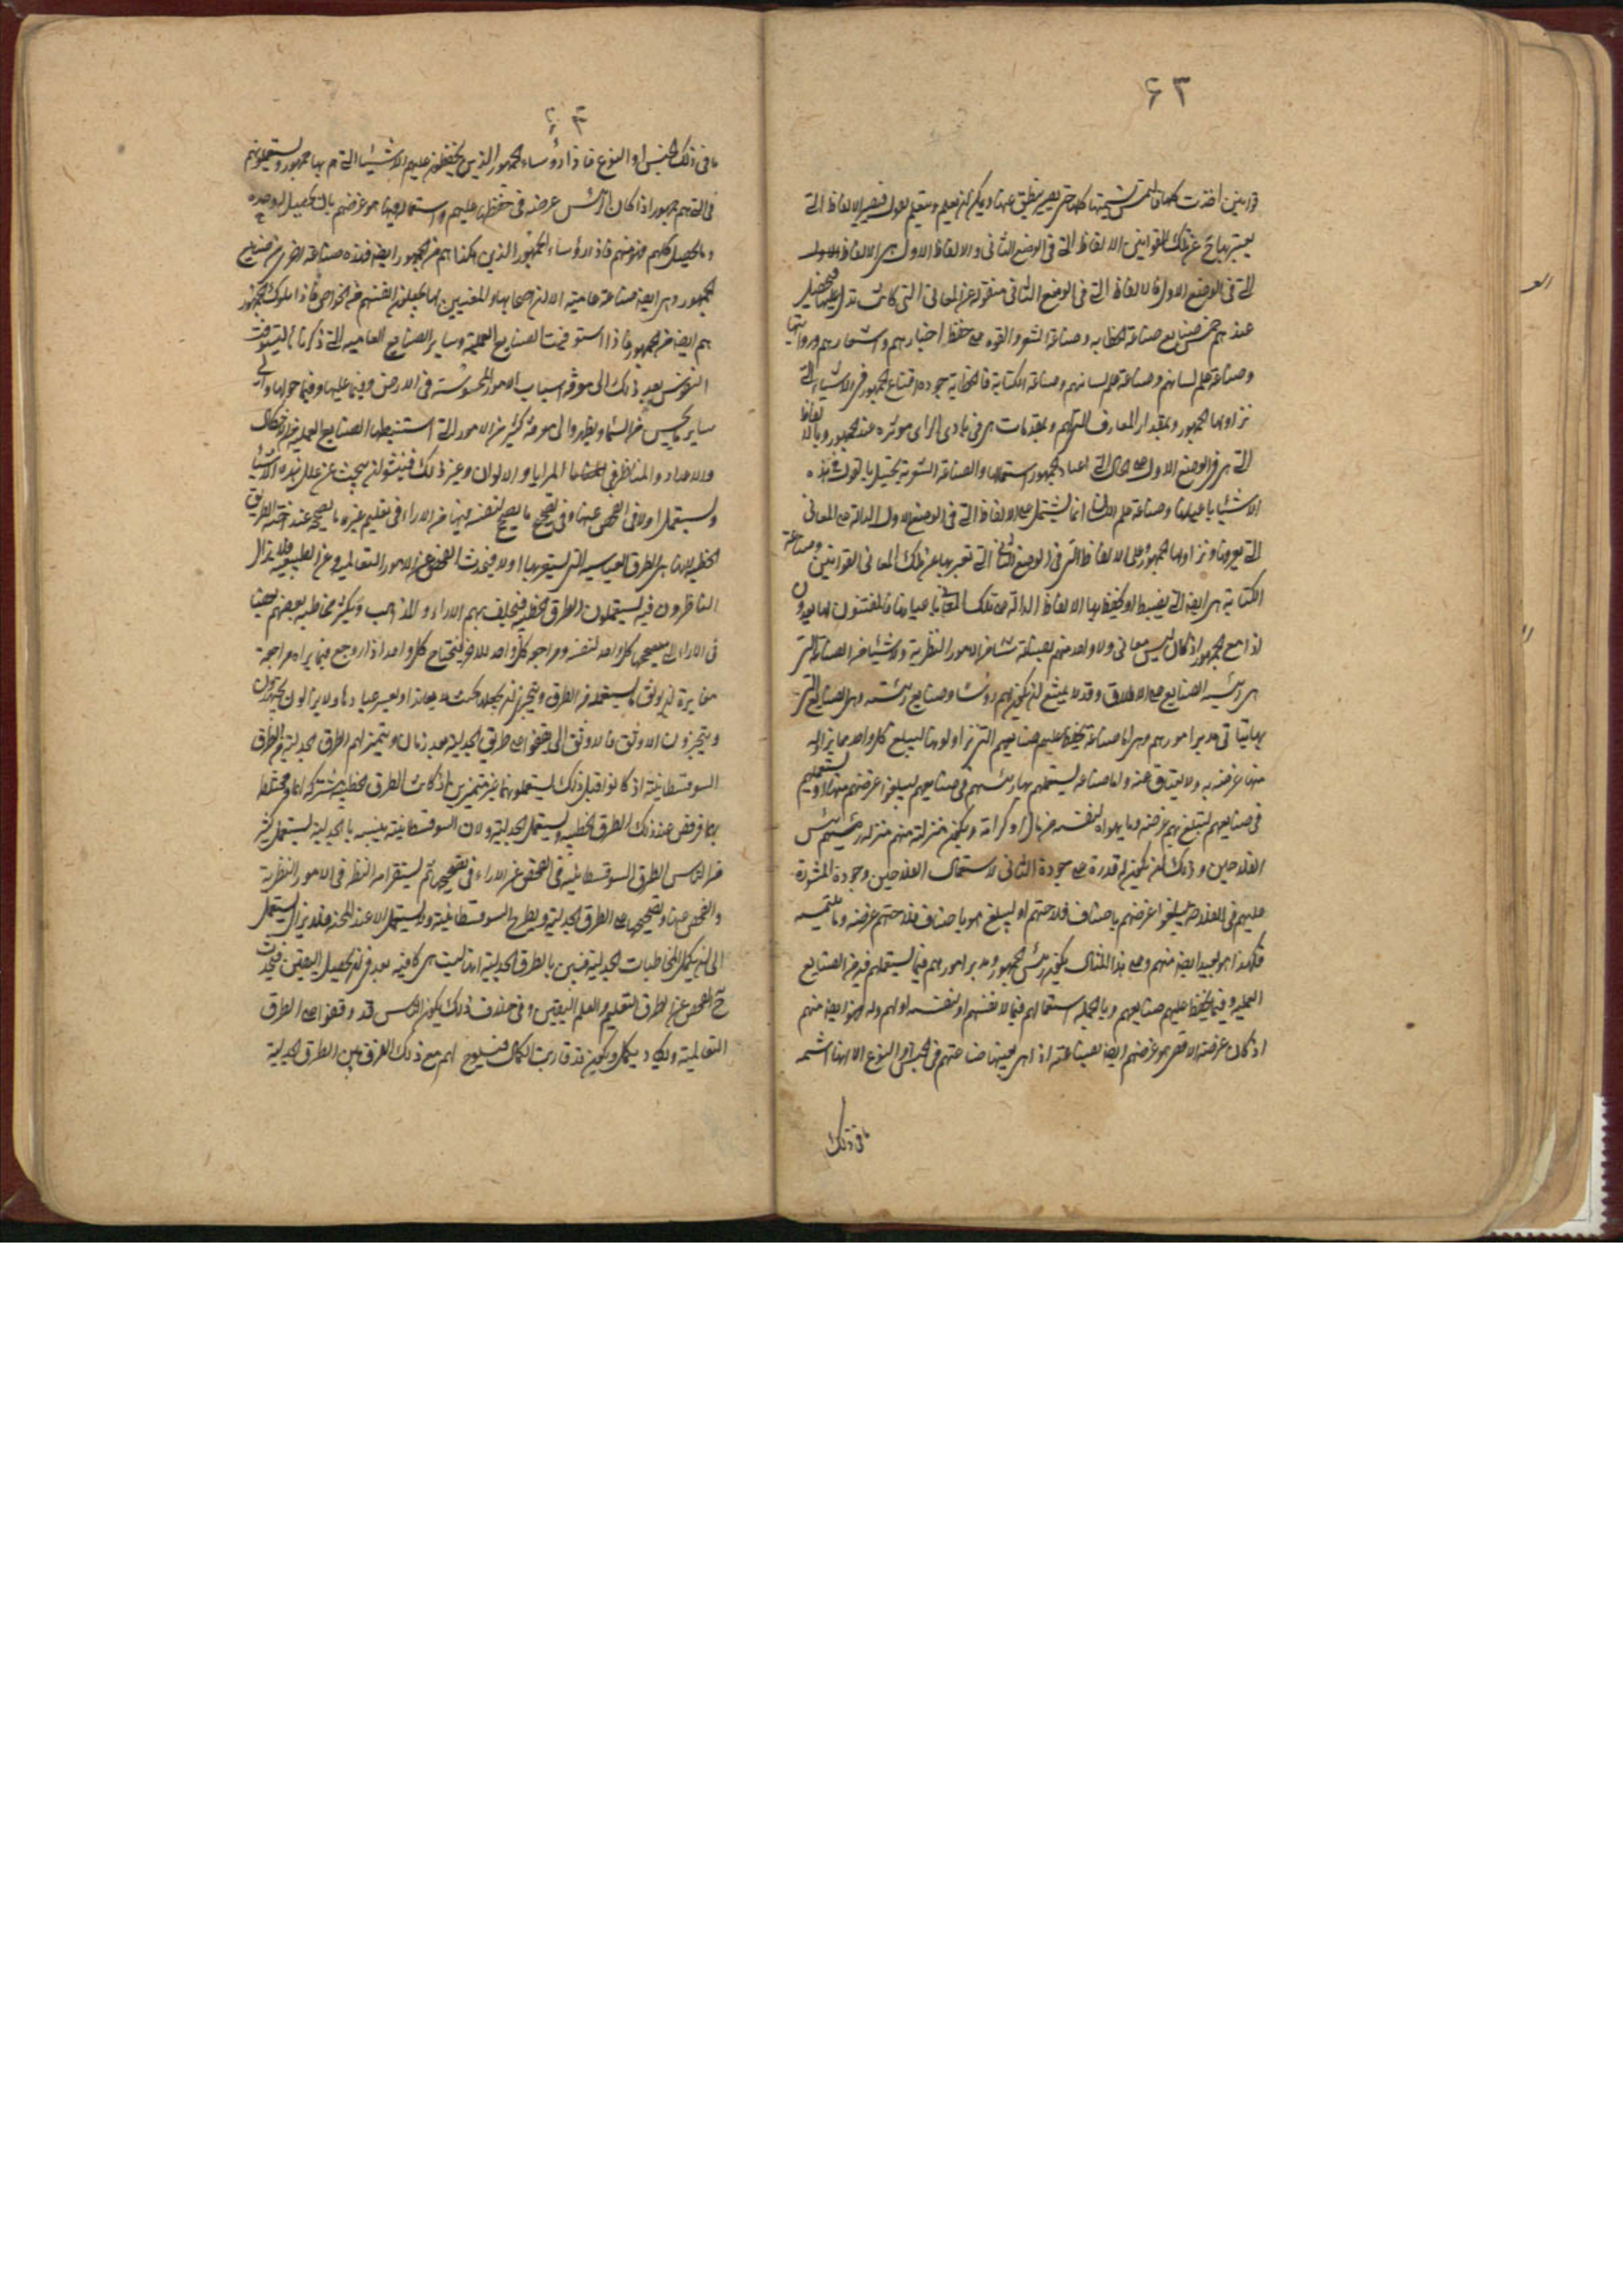 ۶۳
قوانين اخذت كلها والتمس تسميتها كلها حتى يصير ينطق عنها ويمكن ان تعليم وتعلم بقول فتصير الالفاظ التى
يعبر بها ح عن تلك القوانين الالفاظ التى فى الوضع الثانى والالفاظ الاول هى الالفاظ الاول
التى فى الوضع الاول فالالفاظ التى فى الوضع الثانى منقولة عن المعانى التى كانت تدل عليها فيحصل
عندهم خمس صنايع صناعة الخطابه وصناعة الشعر والقوه على حفظ اخبارهم واشعارهم وروايتها
وصناعة علم لسانهم وصناعة الكتابة فالخطابة جودة اقناع الجمهور فى الاشياء التى
تزاولها الجمهور وبمقدار المعارف التى لهم وبمقدمات هى فى بادى الراى موثره عند الجمهور وبالالفاظ
التى هى فى الوضع الاول على الحال التى اعتاد الجمهور استعمالها والصناعة الشعرية تخيل بالقول فى هذه
الاشياء باعيانها وصناعة علم اللسان انما تشتمل على الالفاظ التى فى الوضع الاول الدالة على المعانى
الجمهور وعلى الالفاظ التى فى الوضع الثانى التى تعبر بها عن تلك المعانى القوانين وصناعة
الكتابة هى ايضا التى يضبط او يحفظ بها الالفاظ الدالة على تلك المعانى باعيانها فالمعتنون بها يعدون
اذا مع الجمهور اذ كان ليس معانى ولا واحد منهم بصناعته شئا من الامور النظرية ولا شئيا من الصناعة التى
هى رئيسة الصنايع على الاطلاق وقد لا يمتنع ان يكون لهم رؤسا وصنايع رئيسته وهى الصنايع التى
بها يتاتى تدبير امورهم وهى اما صناعة يحفظ عليهم صنايعهم التى تزاولونها ليبلغ كل واحد مما يزاوله
منها غرضه به ولا يعتاق عنه واما صناعة يستعملهم بها رئيسهم فى صنايعهم ليبلغوا غرضهم منها او يستعملهم
فى صنايعهم لتبلغ بهم غرضه وما يهواه لنفسه من مال او كرامة ويكون منزلته منهم منزلة رئيس
الفلاحين وذلك ان يكون له قدرة على جودة التانى لاستعمال الفلاحين وجودة المشورة
عليهم فى الفلاحة ليبلغوا غرضهم باصناف فلاحتهم او ليبلغ هو باصناف فلاحتهم غرضه وما يلتمسه
فكهذا هو يعد ايضا منهم وعلى هذا المثال يكون رئيس الجمهور ومدبر امورهم فيما يستعملهم فيه من الصنايع
العملية وفيما يحفظ عليهم صنايعهم وبالجمله استعمالهم فيما لانفسهم او لنفسه او لهم وله فهو ايضا منهم
اذ كان غرضه الاقصى هو غرضهم ايضا بصناعته اذا هى بعينها صناعتهم فى الجنس او النوع الا انها اسمى
ما فى ذلك
ما فى ذلك الجنس او النوع فاذا رؤساء الجمهور الذين يحفظون عليهم الاشياء التى هم بها جمهور ويستعملونهم
فى التى هم جمهور اذا كان الرئيس غرضه فى حفظها عليهم واستعمالهم فيها هو غرضهم بان يحصل له وحده
وما يحصل لهم فهو منهم فاذ الرؤساء الجمهور الذين هكذا هم من الجمهور ايضا فهذه صناعة اخرى من صنايع
الجمهور وهى ايضا صناعة عاميته الا ان اصحابها والمعنيين بها يجعلون انفسهم من الخواص فاذا ملوك الجمهور
هم ايضا من الجمهور فاذا استوفيت الصنايع العملية وساير الصنايع العاميه التى ذكرنا اشتاقت
النفوس بعد ذلك الى معرفة اسباب الامور المحسوسة فى الارض وفيما عليها وفيما حولها والى
ساير ما يحس من السماء ويظهر والى معرفة كثير من الامور التى استنبطتها الصنايع العملية من الاشكال
والاعداد والمناظر فى المرايا والالوان وغير ذلك فينشو من يبحث عن علل هذه الاشياء
ويستعمل اولا فى الفحص عنها وفى تصحيح ما يصحح لنفسه فيها من الاراء وفى تعليم غيره ما يصححه عند الطريق
الخطبيه لانها هى الطرق القياسيه التى يشعرون بها اولا فيحدث الفحص عن الامور التعاليميه وعن الطبيعه ولا يزال
الناظرون فيه يستعملون الطرق الخطبيه فيختلف بهم الاراء والمذاهب وتكثر مخاطبة بعضهم بعضا
فى الاراء التى يصححها كل واحد لنفسه ومراجعة كل واحد للاخر فيحتاج كل واحد اذا روجع فيما يراه مراجعة
معاندة ان يوثق ما يستعمله من الطرق ويتحرى ان يجعلها بحيث لا يعاند او يعسر عنادها ولا يزالون يجتهدون
ويتحرون الاوثق فالاوثق الى ان يقفوا على طريق الجدلية بعد زمان ويتميز لهم الطرق الجدلية من الطرق
السوفسطائية اذ كانوا قبل ذلك يستعملونها غير متميزين اذ كانت الطرق الخطبيه مشتركة لهما ومختلطة
بهما فيرفض عند ذلك الطرق الخطبيه ويستعمل الجدلية ولان السوفسطائية يشبه الجدلية يستعمل كثير
من الناس الطرق السوفسطائية فى الفحص عن الاراء وفى تصحيحها ثم يستقر امر النظر فى الامور النظرية
والفحص عنها وتصحيحها على الطرق الجدلية ويطرح السوفسطائية ولا يستعمل الا عند المحنة فلا يزال يستعمل
الى ان يكمل المخاطبات الجدلية فتبين بالطرق الجدلية انها ليست هى كافيه بعد فى ان يحصل اليقين فيحدث
ح الفحص عن طرق التعليم والعلم اليقين وفى خلال ذلك يكون الناس قد وقعوا على الطرق
التعاليمية وتكاد يكمل ويكون قد قاربت الكمال فيلوح لهم مع ذلك الفرق بين الطرق الجدلية